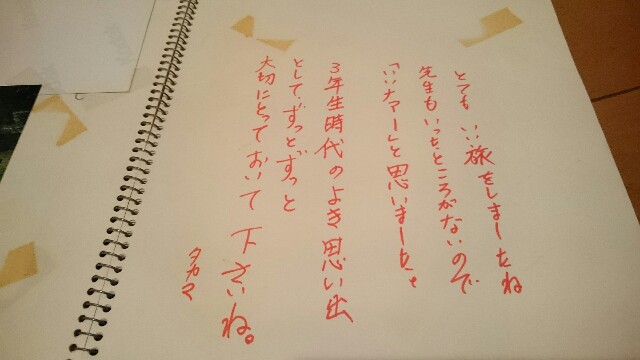 とてもいい旅をしましたね
先生もいったところがないので
「いいナァー」と思いました。
3年生時代のよき思い出
として、ずっとずっと
大切にとっておいて下さいね。
タカマ